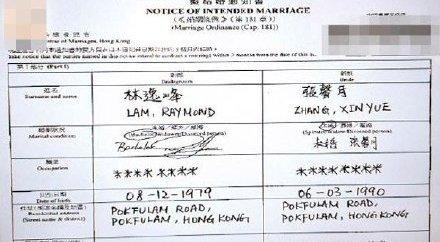 擬結婚通知書
NOTICE OF INTENDED MARRIAGE
《婚姻條例》(第 181 章)
(Marriage Ordinance (Cap. 181))
of Marriages, Hong Kong
Take notice that the persons named in this notice intend to contract a marriage within 3 months from the date of this
新郎
Bridegroom
新娘
Bride
姓名
Surname and name
林逸峰
張馨月
LAM, RAYMOND
ZHANG, XINYUE
婚姻狀況
Marital condition
Bachelor
未婚 張馨月
職業
Occupation
******
******
出生日期
Date of birth
08-12-1979
06-03-1990
Residential address
(Street name & district)
POKFULAM ROAD,
POKFULAM, HONG KONG
POKFULAM ROAD,
POKFULAM, HONG KONG